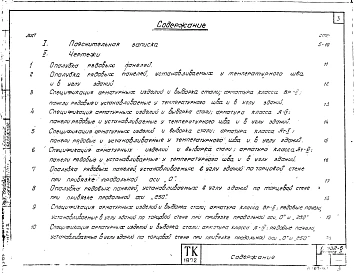 Содержание
3
лист
стр.
I. Пояснительная записка 5-10
II. Чертежи
1 Опалубка рядовых панелей. 11
2 Опалубка рядовых панелей, устанавливаемых у температурного шва
и в углу зданий 12
3 Спецификация арматурных изделий и выборка стали; арматура класса
панели рядовые и устанавливаемые у температурного шва и в углу зданий. 13
4 Спецификация арматурных изделий и выборка стали; арматура класса
панели рядовые и устанавливаемые у температурного шва и в углу зданий. 14
5 Спецификация арматурных изделий и выборка стали; арматура класса
панели рядовые и устанавливаемые у температурного шва и в углу зданий. 15
6 Спецификация арматурных изделий и выборка стали; арматура класса
панели рядовые и устанавливаемые у температурного шва и в углу зданий. 16
7 Опалубка рядовых панелей, устанавливаемых в углу зданий по торцовой стене
при привязке продольной оси „0".
8 Опалубка рядовых панелей, устанавливаемых в углу зданий по торцовой стене
при привязке продольной оси „250".
9 Спецификация арматурных изделий и выборка стали; арматура класса рядовые панели,
устанавливаемые в углу зданий по торцовой стене при привязке продольной оси „0" и „250"
10 Спецификация арматурных изделий и выборка стали; арматура класса рядовые панели,
устанавливаемые в углу зданий по торцовой стене при привязке продольной оси „0" и „250"
ТК
1972
Содержание